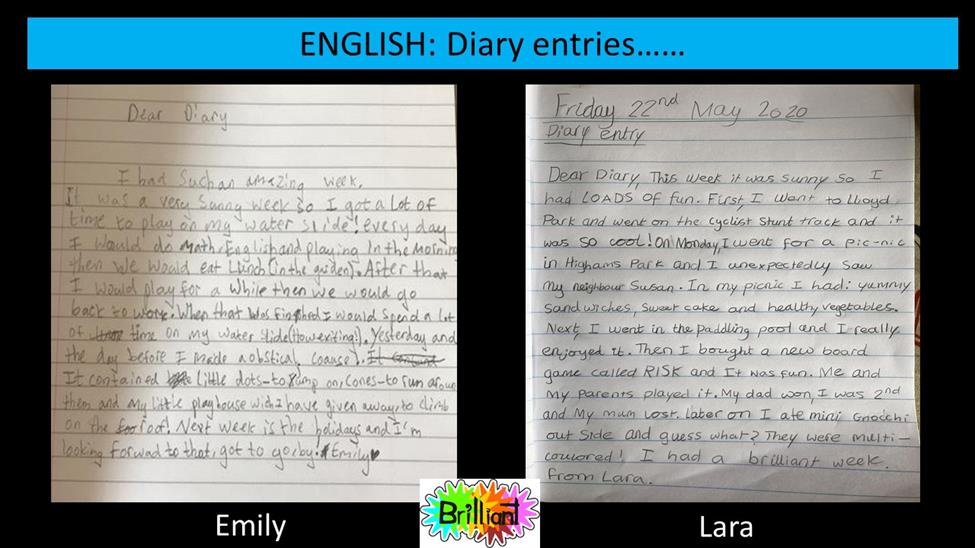 ENGLISH: Diary entries……
Dear Diary
I had Such an amazing week.
It was a very sunny week so I got a lot of
time to play on my water slide! every day
I would do math, English and playing In the morning
then we would eat Lunch (in the garden). After that
I would play for a while then we would go
back to work. When that was finished I would spend a lot
of time on my water slide (How exiting!). Yesterday and
the day before I made a obstical coarse).
It contained little dots-to jump on, cones-to run around
them and my little playhouse wich I have given away, to climb
on the roof! Next week is the holidays and I'm
looking forward to that, got to go by. Emily♥
Friday 22nd May 2020
Diary entry
Dear Diary, This week it was sunny so I
had LOADS OF fun. First, I went to Lloyd
Park and went on the cyclist stunt track and it
was so cool! On Monday, I went for a pic-nic
in Highams Park and I unexpectedly saw
my neighbour Susan. In my picnic I had: yummy
sandwiches, sweet cake and healthy vegetables.
Next, I went in the paddling pool and I really
enjoyed it. Then I bought a new board
game called RISK and It was fun. Me and
my parents played it. My dad won, I was 2nd
and my mum lost. Later on I ate mini gnocchi
out side and guess what? They were multi-
coloured! I had a brilliant week.
From Lara.
Emily
Brilliant
Lara